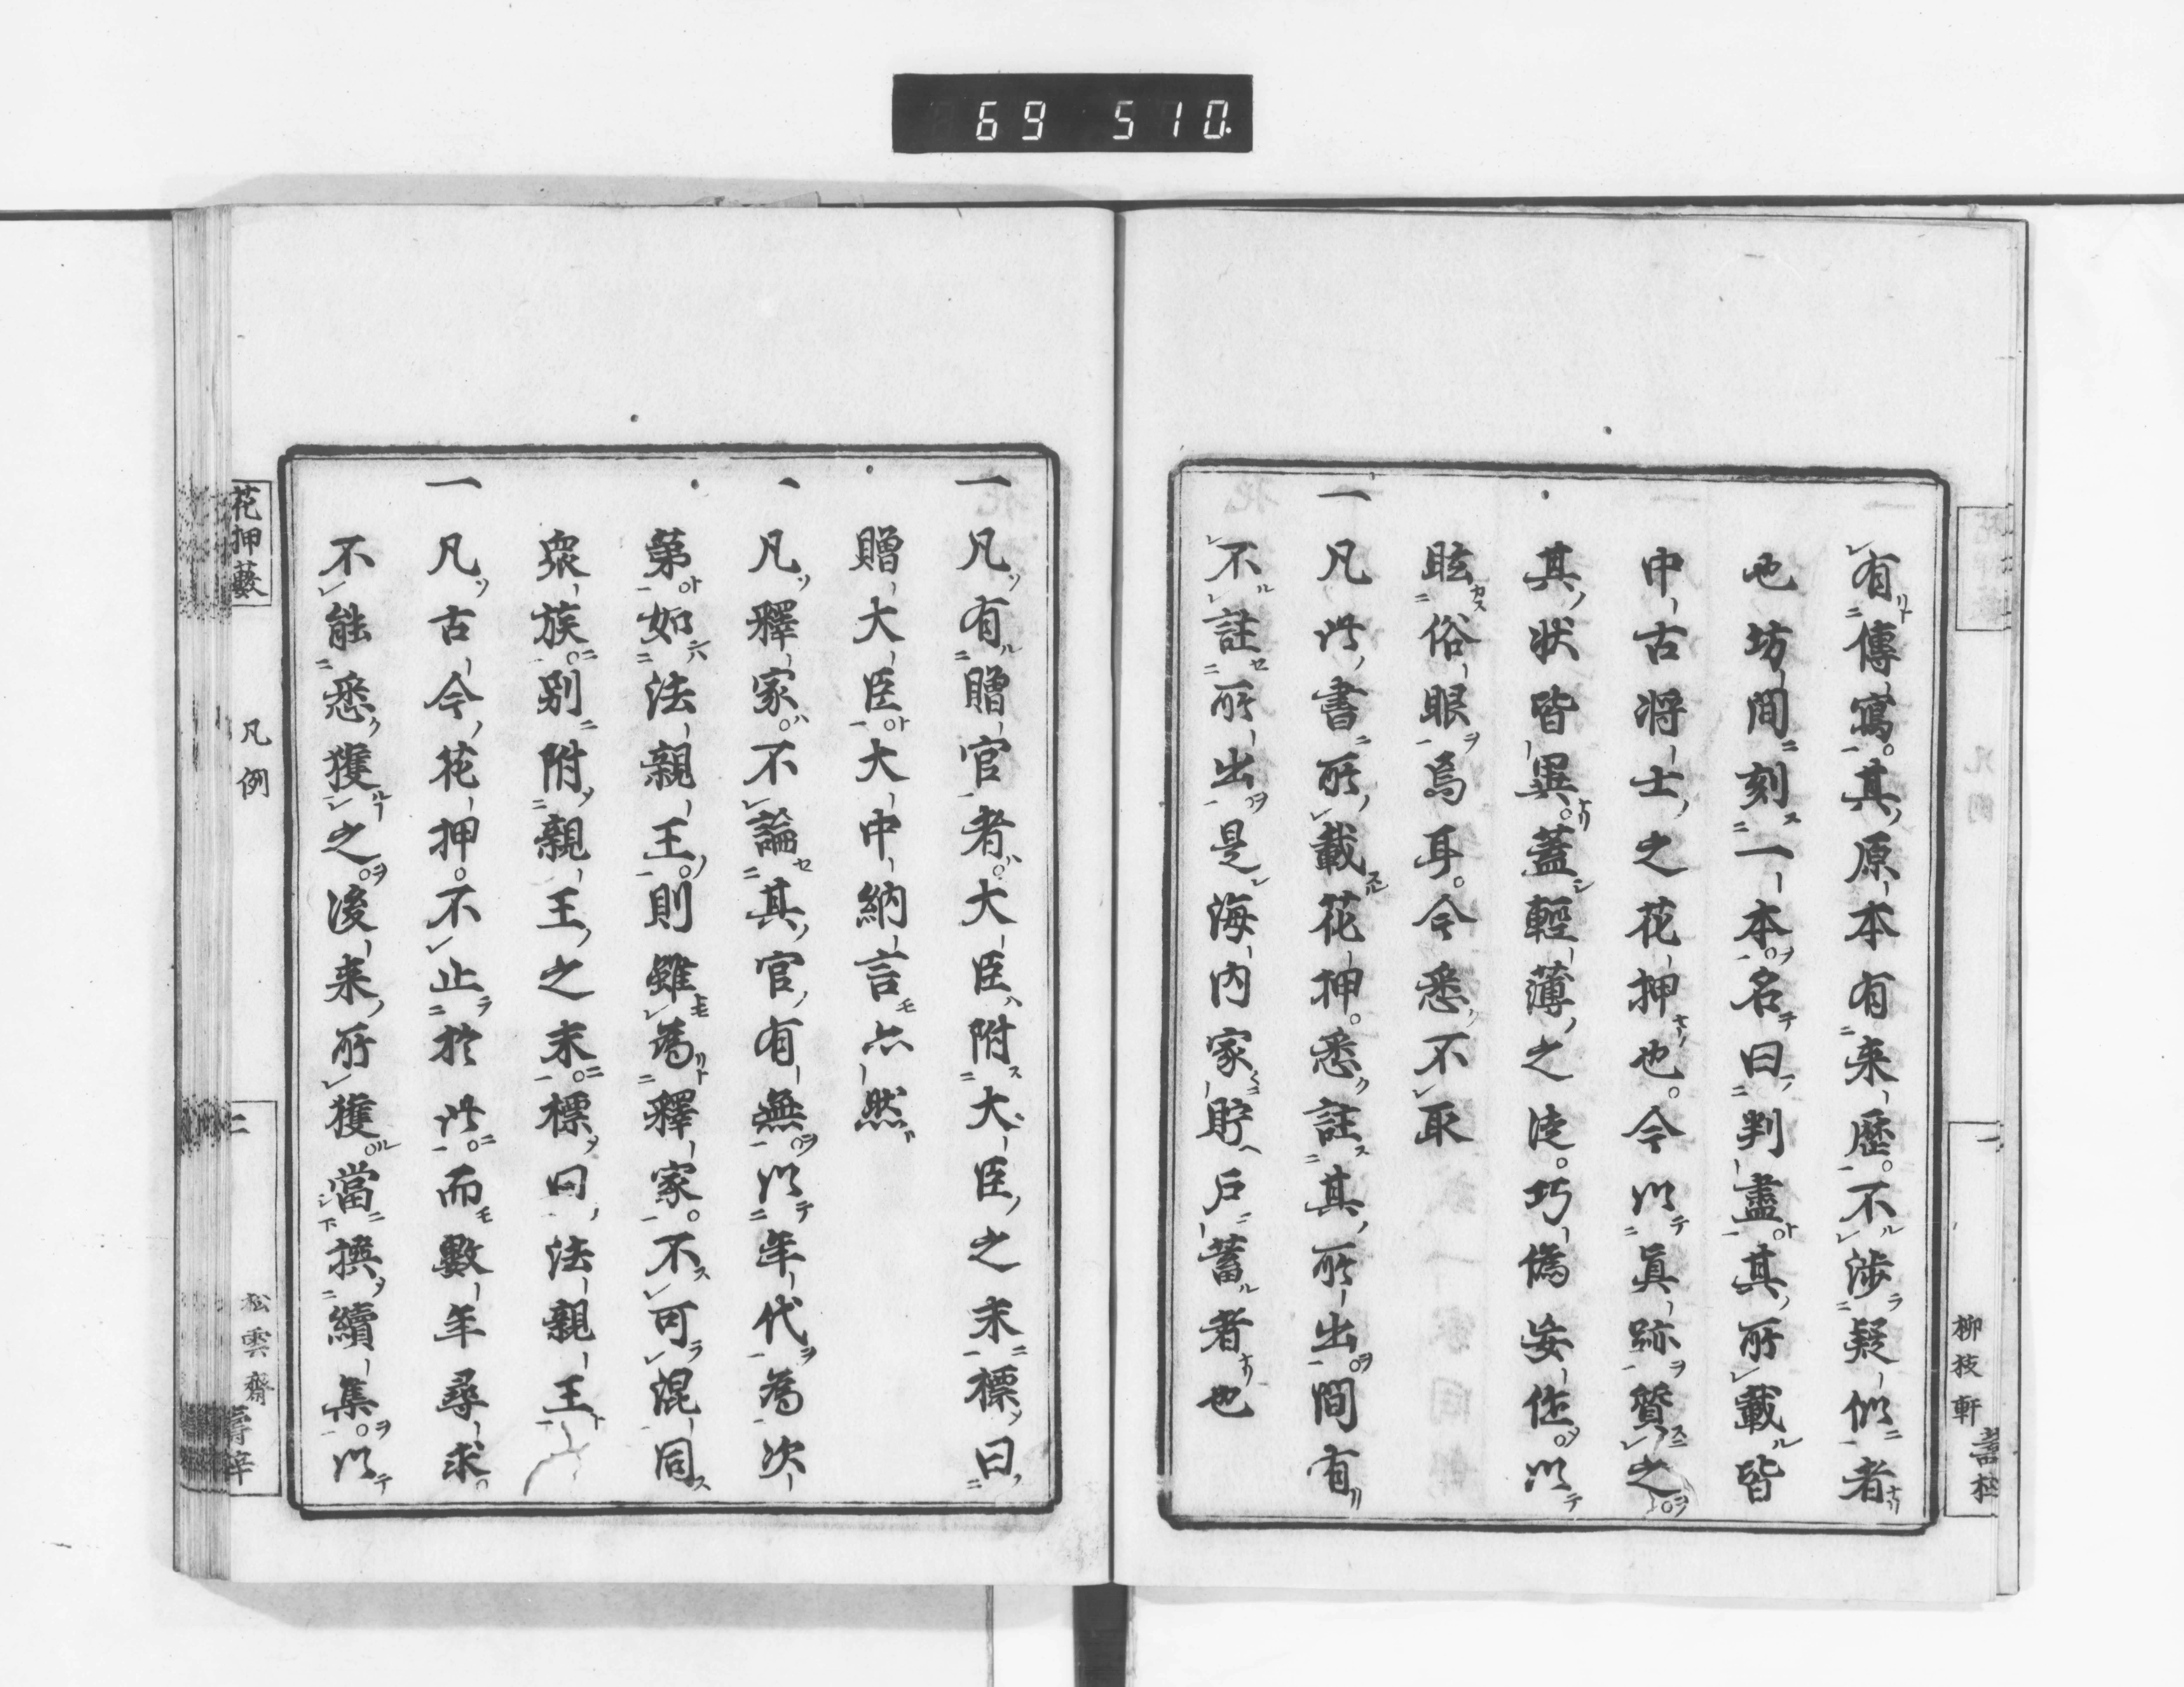 69 510.
有傳寫其原本有来歷不渉疑似者
也坊間刻一本名曰判盡其所載皆
中古将士之花押也今以眞跡質之
其状皆異蓋輕薄之徒巧偽妄作以
眩俗眼焉耳今悉不取
一凡此書所載花押悉註其所出間有
不註所出是海内家貯戸蓄者也
柳枝軒
一凡有贈官者大臣附大臣之末標曰
贈大臣大中納言亦然
凡釋家不論其官有無以年代為次
第如法親王則雖為釋家不可混同
衆族別附親王之末標曰法親王
一凡古今花押不止於此而數年尋求
不能悉獲之後来所獲當撰續集以
花押藪
凡例
二
松雲齋